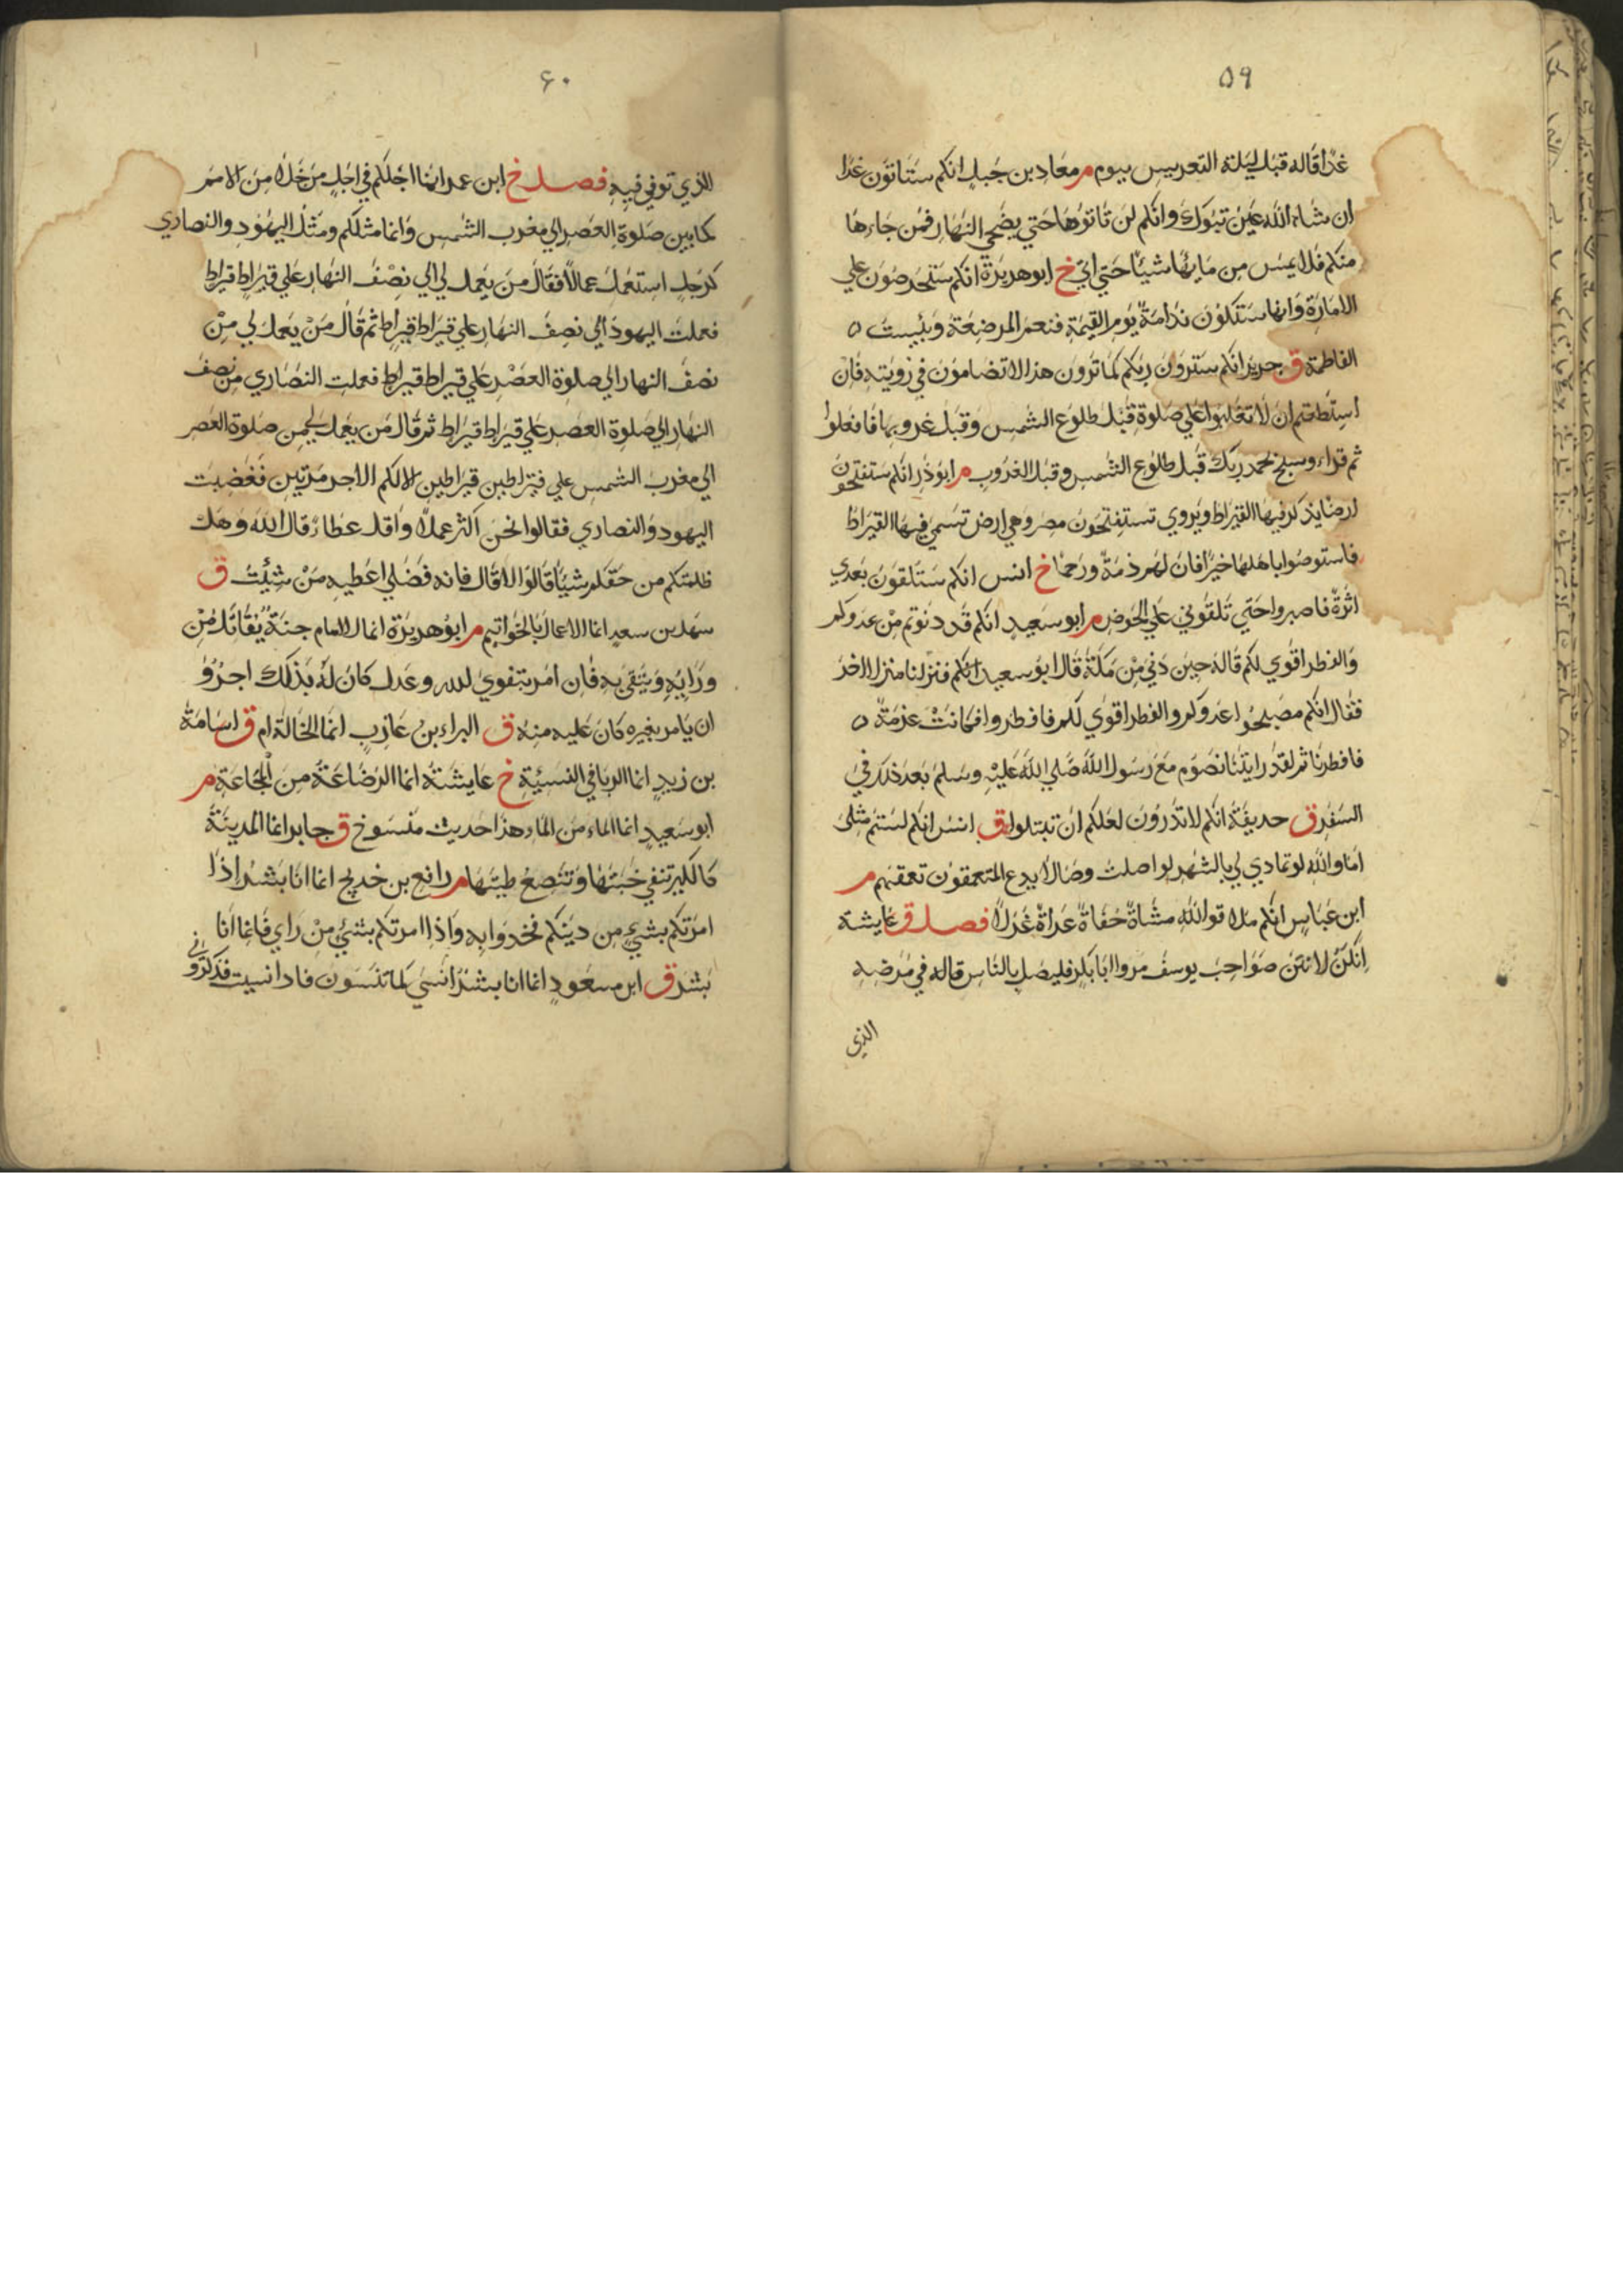 ٥٩
غدا قاله قبل ليلة التعريس بيوم م معاذ بن جبل انكم ستاتون غدا
ان شاء الله عين تبوك وانكم لن تاتوها حتي يضحي النهار فمن جاءها
منكم فلا يمس من مايها شيئا حتي اتي خ ابو هريرة انكم ستحرصون علي
الامارة وانها ستكون ندامة يوم القيمة فنعم المرضعة وبيست
الفاطمة ق جرير انكم سترون ربكم كما ترون هذا لا تضامون في رويته فان
استطعتم ان لا تغلبوا علي صلوة قبل طلوع الشمس وقبل غروبها فافعلوا
ثم قراء وسبح بحمد ربك قبل طلوع الشمس وقبل الغروب م ابو ذر انكم ستفتحون
ارضا يذكر فيها القيراط ويروي تستفتحون مصر وهي ارض تسمي فيها القيراط
فاستوصوا باهلها خيرا فان لهم ذمة ورحما خ انس انكم ستلقون بعدي
اثرة فاصبروا حتي تلقوني علي الحوض م ابو سعيد انكم قد دنوتم من عدوكم
والفطر اقوي لكم قاله حين دني من مكة قال ابو سعيد انكم فنزلنا منزلا اخر
فقال انكم مصبحوا عدوكم والفطر اقوي لكم فافطروا فكانت عزمة
فافطرنا ثم لقد رايتنا نصوم مع رسول الله صلي الله عليه وسلم بعد ذلك في
السفر ق حديفة انكم لا تدرون لعلكم ان تبتلوا ق انس انكم لستم مثلي
اما والله لو تمادي لي بالشهر لواصلت وصالا يدع المتعمقون تعمقهم م
ابن عباس انكم ملاقوا الله مشاة حفاة عراة غرلا فصل ق عايشة
انكن لانتن صواحب يوسف مروا ابا بكر فليصل بالناس قاله في مرضه
الذي
٦٠
الذي توفي فيه فصل خ ابن عمر انما اجلكم في اجل من خلا من الامم
كما بين صلوة العصر الي مغرب الشمس وانما مثلكم ومثل اليهود والنصاري
كرجل استعمل عمالا فقال من يعمل لي الي نصف النهار علي قيراط قيراط
فعملت اليهود الي نصف النهار علي قيراط قيراط ثم قال من يعمل لي من
نصف النهار الي صلوة العصر علي قيراط قيراط فعملت النصاري من نصف
النهار الي صلوة العصر علي قيراط قيراط ثم قال من يعمل لي من صلوة العصر
الي مغرب الشمس علي قيراطين قيراطين الا لكم الاجر مرتين فغضبت
اليهود والنصاري فقالوا نحن اكثر عملا واقل عطاء قال الله وهل
ظلمتكم من حقكم شيئا قالوا لا قال فانه فضلي اعطيه من شئت ق
سهل بن سعد انما الاعمال بالخواتيم م ابو هريرة انما الامام جنة يقاتل من
ورايه ويتقي به فان امر بتقوي لله وعدل كان له بذلك اجر و
ان يامر بغيره كان عليه منه ق البراء بن عازب انما الخالة ام ق اسامة
بن زيد انما الربا في النسيئة خ عايشة انما الرضاعة من المجاعة م
ابو سعيد انما الماء من الماء هذا حديث منسوخ ق جابر انما المدينة
كالكير تنفي خبثها وتنصع طيبها م رافع بن خديج انما انا بشر اذا
امرتكم بشيء من دينكم فخدوا به واذا امرتكم بشيء من راي فانما انا
بشر ق ابن مسعود انما انا بشر انسي كما تنسون فاذا نسيت فذكروني